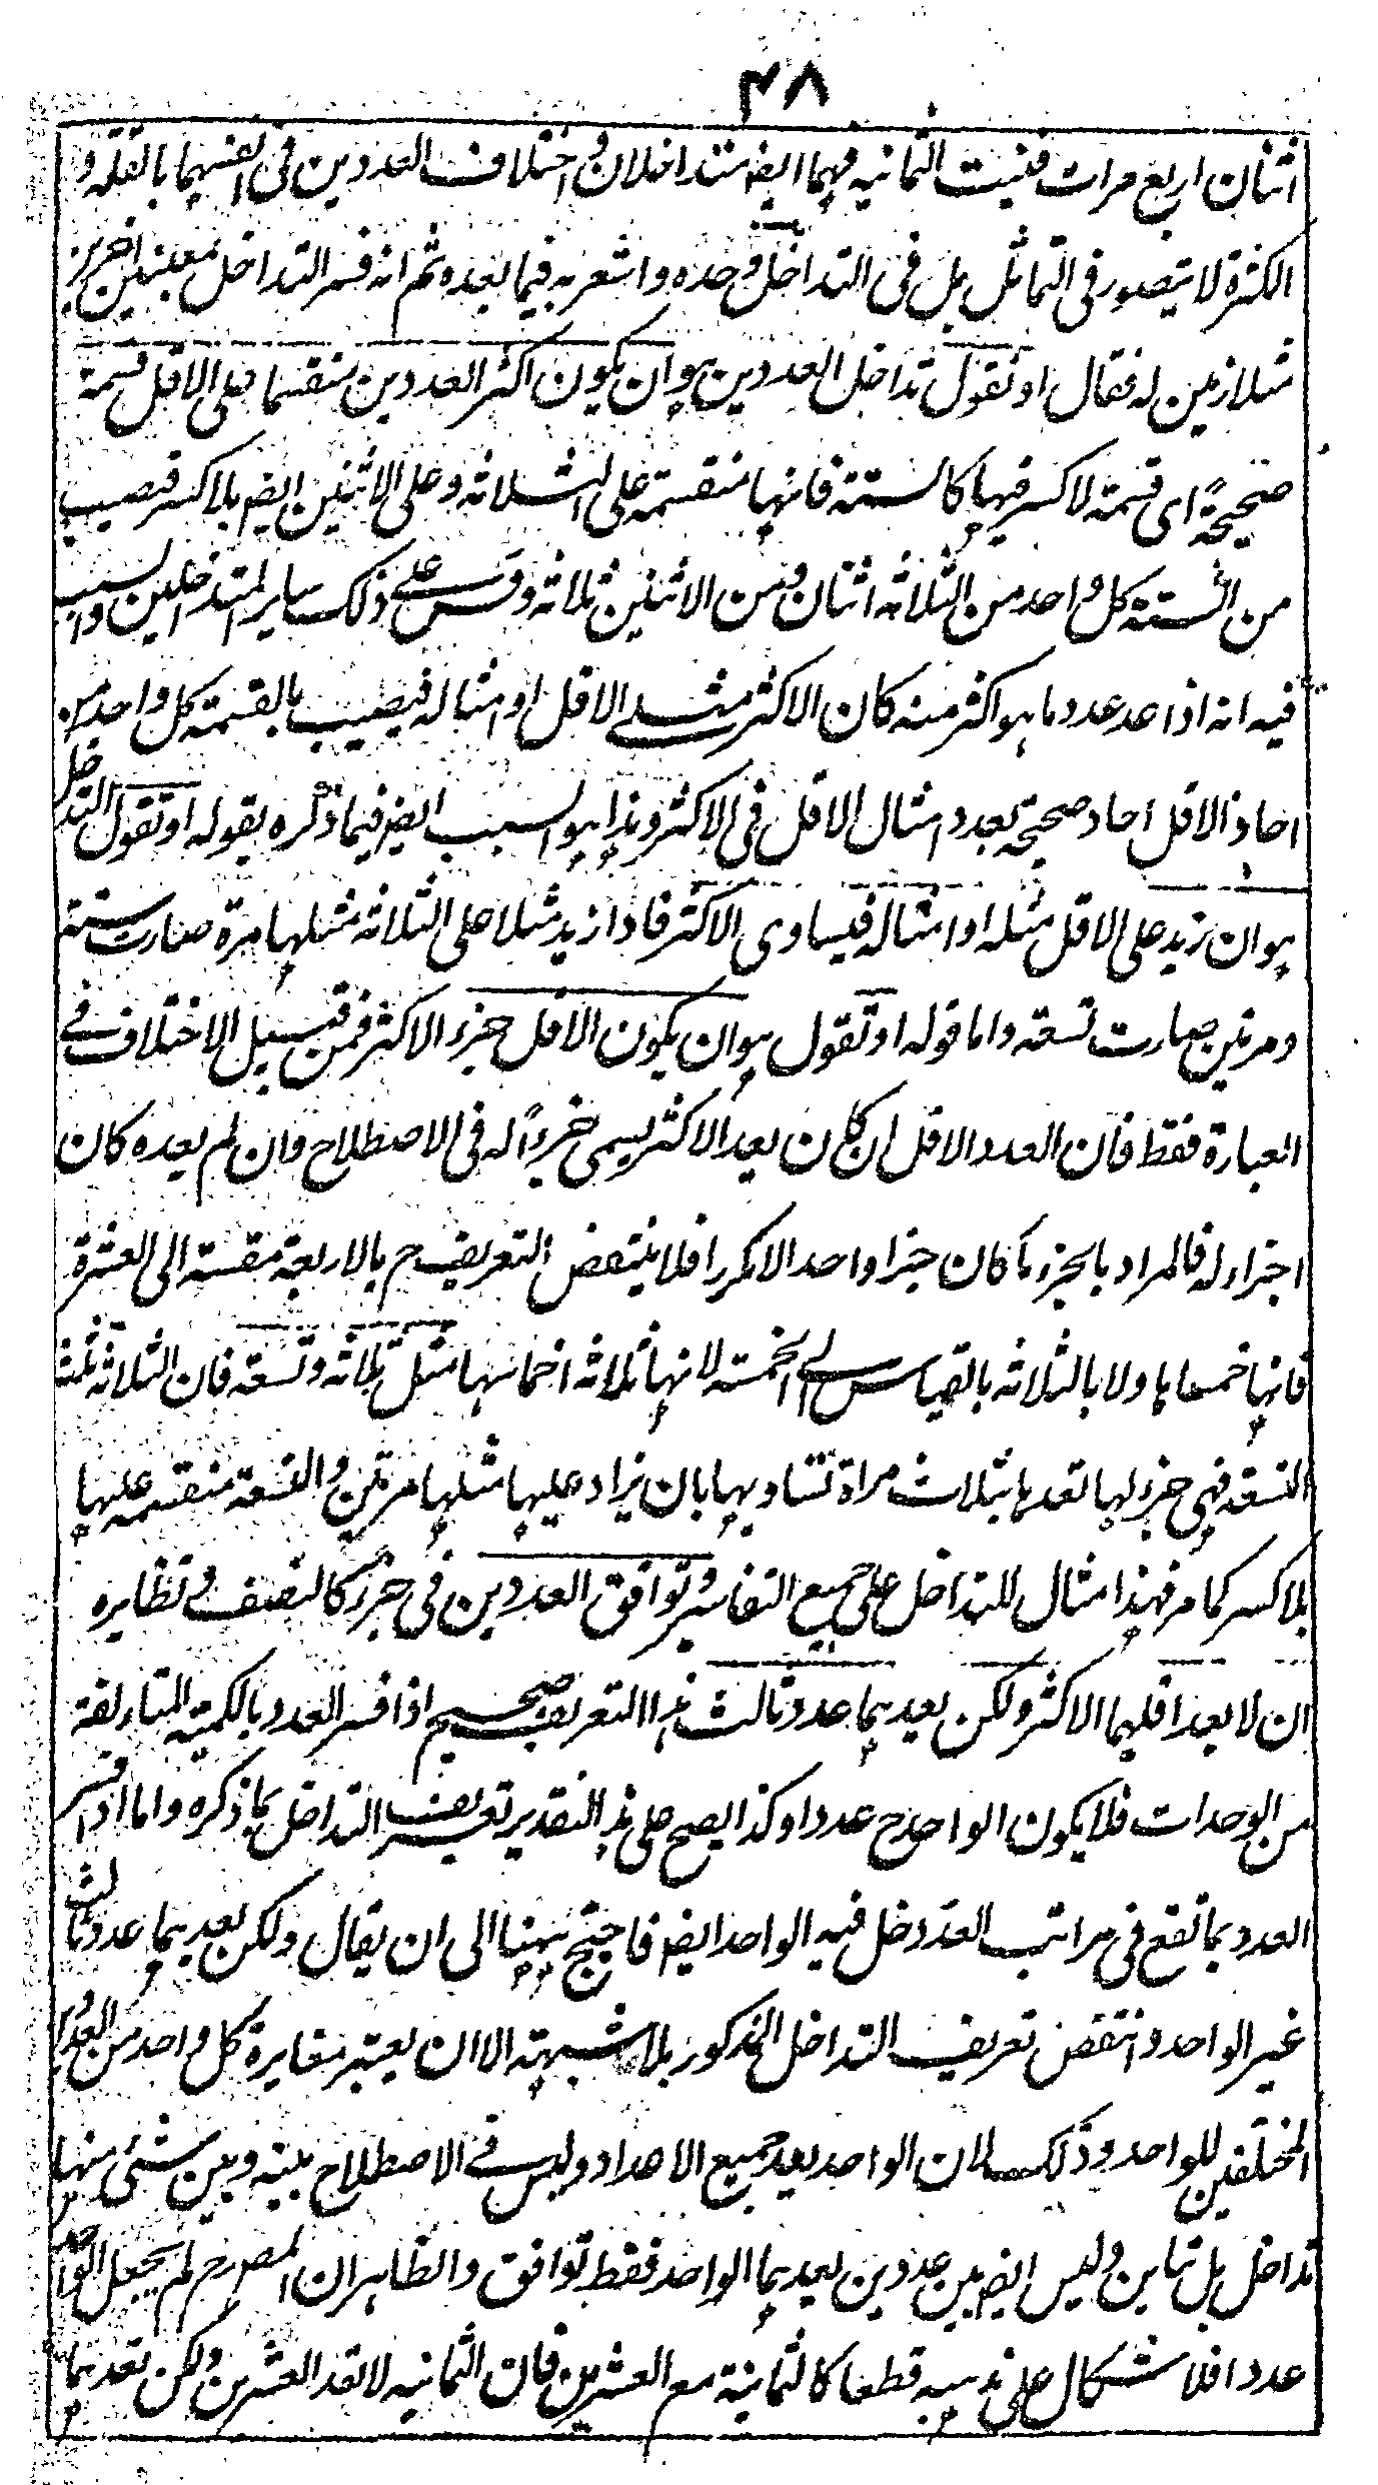 ٤٨
اثنان اربع مرات فنيت الثمانيه فهما ايضم متداخلان و اختلاف العددين فى انفسهما بالقلة و
الكثرة لا يتصور فى التماثل بل فى التداخل وحده واشعر به فيما بعده ثم انه فسر التداخل بمعنيين اخريين
متلازمين له فقال او نقول تداخل العددين هو ان يكون اكثر العددين منقسما على الاقل قسمة
صحيحةً اى قسمة لا كسر فيها كالستة فانها منقسمة على الثلاثة وعلى الاثنين ايضم بلا كسر فيصيب
من الستة كل واحد من الثلاثة اثنان ومن الاثنين ثلاثة وقس على ذلك ساير المتداخلين والسبب
فيه انه اذا عد عدد ما هو اكثر منه كان الاكثر مثلى الاقل او امثاله فيصيب بالقسمة كل واحد من
احاد الاقل احاد صحيحة بعدد امثال الاقل فى الاكثر وهذا هو السبب ايضم فيما ذكره بقوله او نقول التداخل
هو ان نزيد على الاقل مثله او امثاله فيساوى الاكثر فاذا زيد مثلا على الثلاثة مثلها مرة صارت ستة
ومرتين صارت تسعة واما قوله او نقول هو ان يكون الاقل جزء الاكثر فمن قبيل الاختلاف فى
العبارة فقط فان العدد الاقل ان كان يعد الاكثر يسمى جزءاً له فى الاصطلاح وان لم يعده كان
اجزاء له فالمراد بالجزء ما كان جزا واحدا لا مكررا فلا ينتقض التعريف ح بالاربعة مقسة الى العشرة
فانها خمساها ولا بالثلاثة بالقياس الى الخمسة لانها ثلاثة اخماسها مثل ثلاثة وتسعة فان الثلاثة ثلث
التسعة فهى جزء لها تعدها بثلاث مراة تساويها بان يزاد عليها مثلها مرتين والتسعة منقسمة عليها
بلا كسر كما مر فهذا مثال للتداخل على جميع التفاسير وتوافق العددين فى جزء كالنصف ونظايره
ان لا يعد اقلهما الاكثر ولكن يعدهما عدد ثالث هذا التعريف صحيح اذا فسر العدد بالكمية المتالفة
من الوحدات فلا يكون الواحد ح عددا وكذا يصح على هذا التقدير تعريف التداخل بما ذكره واما اذا فسر
العدد بما تقع فى مراتب العدد دخل فيه الواحد ايضم فاحتيج ههنا الى ان يقال ولكن يعدهما عدد ثالث
غير الواحد وانتقض تعريف التداخل المذكور بلا شبهة الا ان يعتبر مغايرة كل واحد من العددين
المختلفين للواحد وذلك لان الواحد يعد جميع الاعداد وليس فى الاصطلاح بينه وبين شئ منها
تداخل بل تباين وليس ايضم بين عددين يعدهما الواحد فقط توافق والظاهر ان المصرح لم يجعل الواحد
عددا فلا اشكال على مذهبه قطعا كالثمانية مع العشرين فان الثمانيه لا تعد العشرين ولكن تعدهما